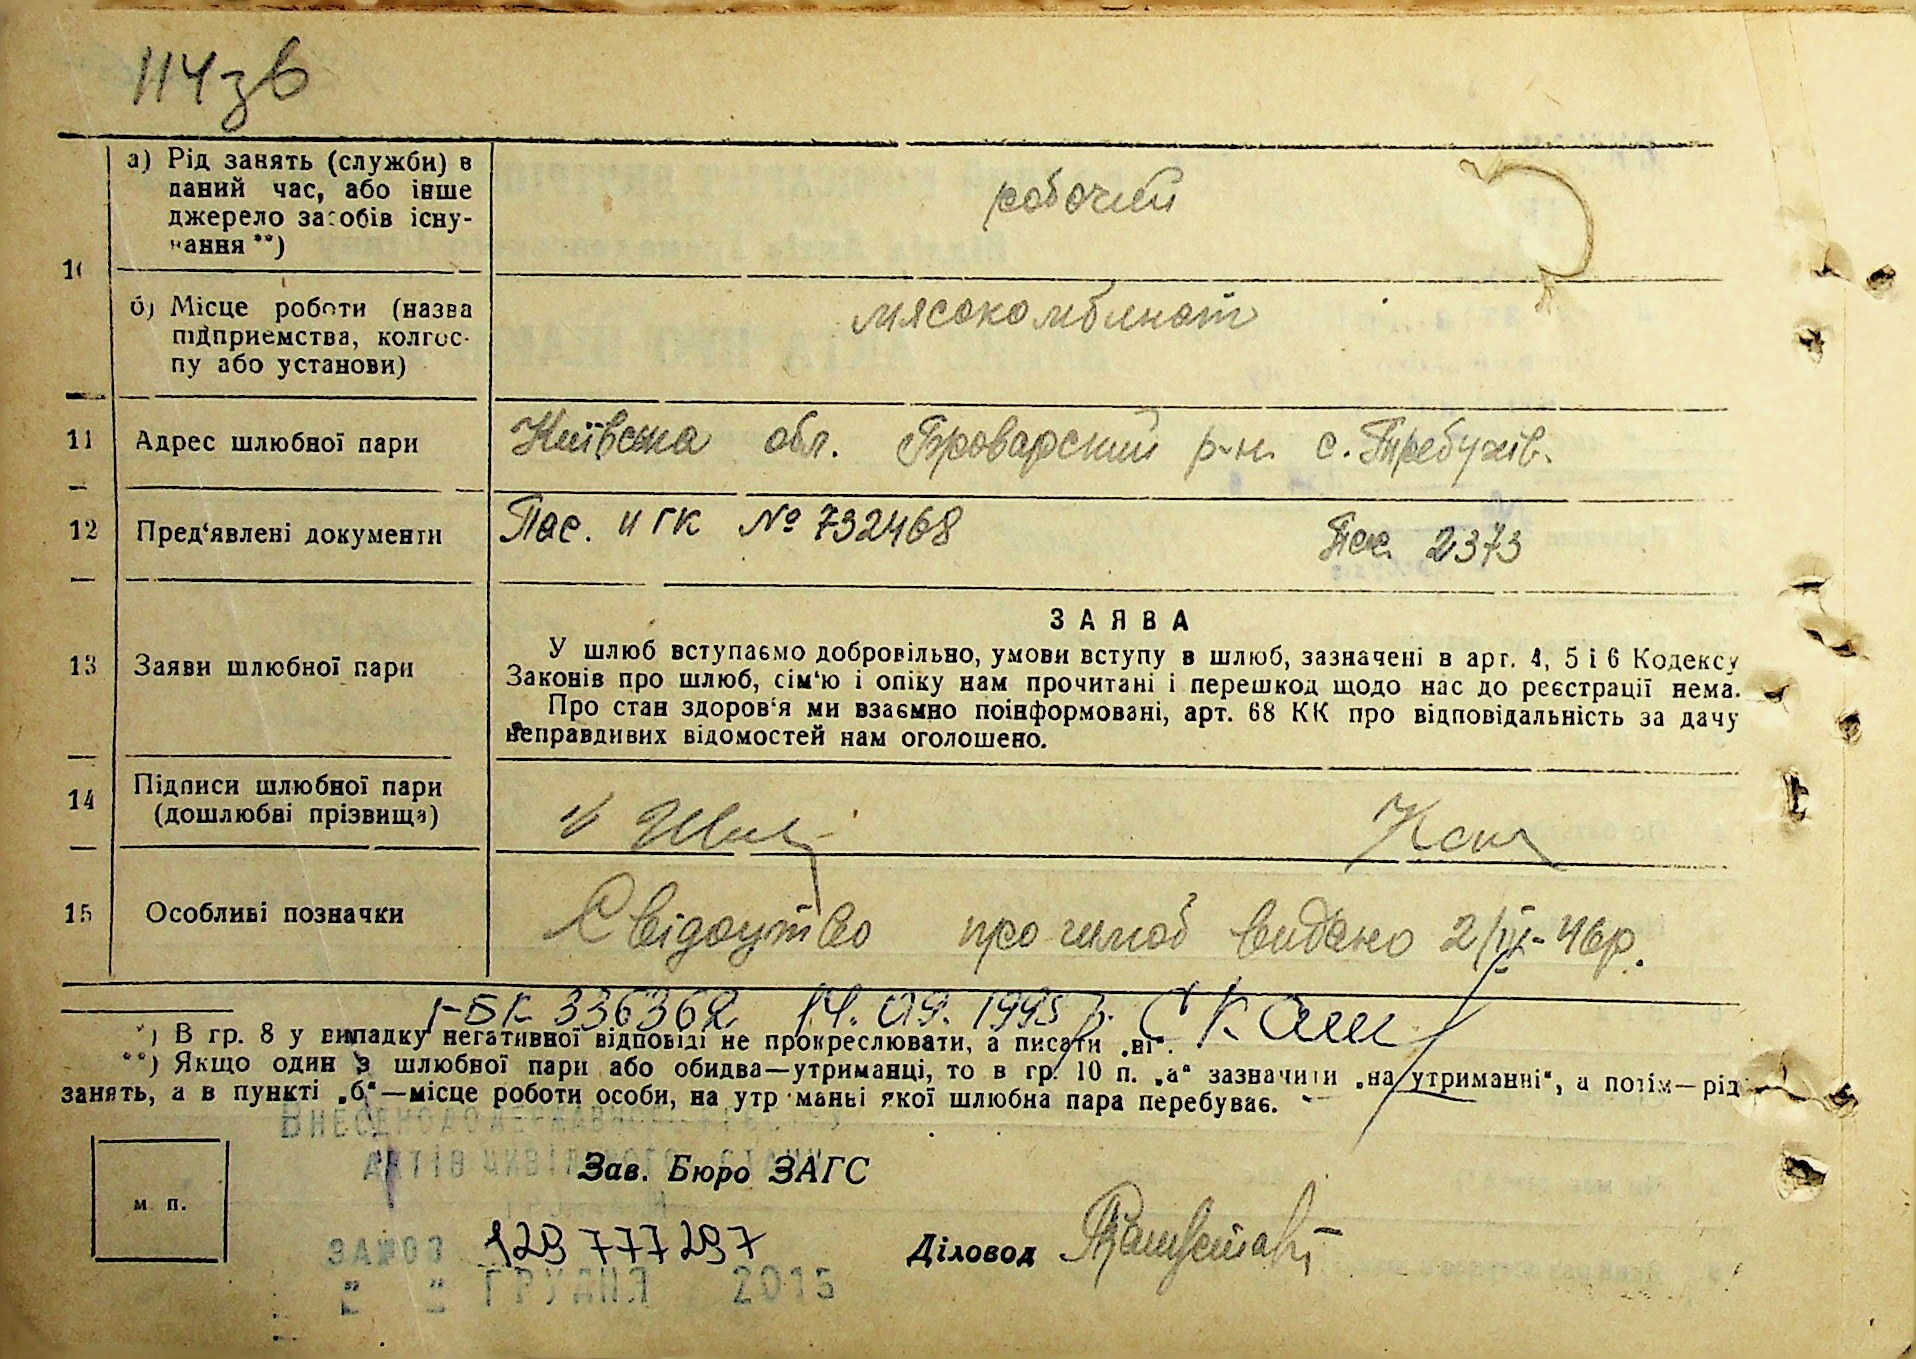 114зв
а) Рід занять (служби) в
даний час, або інше
джерело засобів існу-
вання **)
робочий
10
б) Місце роботи (назва
підприємства, колгос-
пу або установи)
мясокомбінат
11 Адрес шлюбної пари Київська обл. Броварский р-н. с. Требухів.
12 Пред‘явлені документи Пас. II ГК № 732468 Пас. 2373
ЗАЯВА
13 Заяви шлюбної пари
У шлюб вступаємо добровільно, умови вступу в шлюб, зазначені в арт. 4, 5 і 6 Кодексу
Законів про шлюб, сім‘ю і опіку нам прочитані і перешкод щодо нас до реєстрації нема.
Про стан здоров‘я ми взаємно поінформовані, арт. 68 КК про відповідальність за дачу
неправдивих відомостей нам оголошено.
14 Підписи шлюбної пари
(дошлюбні прізвища)
15 Особливі позначки Свідоцтво про шлюб видано 2/IX-46р.
І-БК 336362 14.09.1995р.
*) В гр. 8 у випадку негативної відповіді не прокреслювати, а писати „ні“.
**) Якщо один з шлюбної пари або обидва—утриманці, то в гр. 10 п. „а“ зазначити „на утриманні“, а потім—рід
занять, а в пункті „б“—місце роботи особи, на утриманні якої шлюбна пара перебуває.
ВНЕСЕНО ДО ДЕРЖАВНОГО РЕЄСТРУ
АКТІВ ЦИВІЛЬНОГО СТАНУ
Зав. Бюро ЗАГС
м. п.
ЗА №00 129777297
Діловод
" " ГРУДНЯ 2015